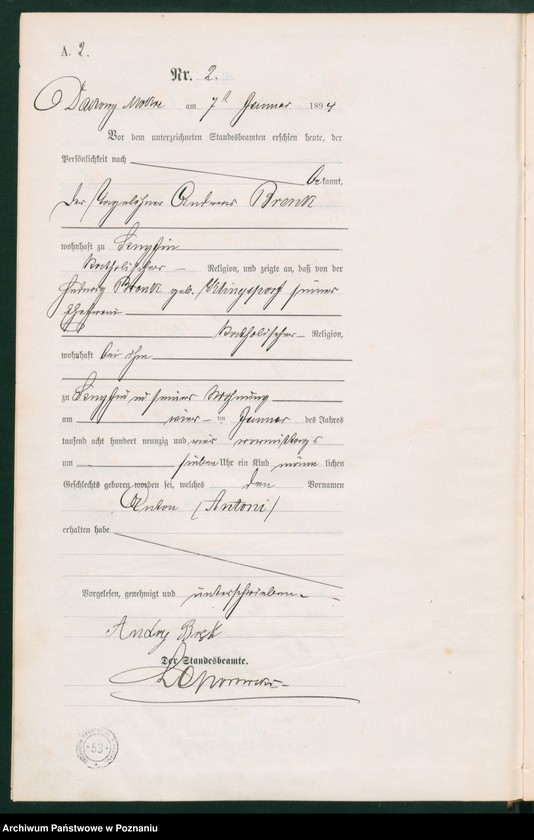 A. 2.
Nr. 2.
am 7ten Januar 1894
Vor dem unterzeichneten Standesbeamten erschien heute, der
Persönlichkeit nach
bekannt,
der Tagelöhner Andreas Bronk
wohnhaft zu
katholischer Religion, und zeigte an, daß von der
Hedwig Bronk geb. Klingsporf seiner
Ehefrau
katholischer Religion,
wohnhaft bei ihm
zu in seiner Wohnung
am vier ten Januar des Jahres
tausend acht hundert neunzig und vier vormittags
um sieben Uhr ein Kind männ lichen
Geschlechts geboren worden sei, welches den Vornamen
Anton (Antoni)
erhalten habe
Vorgelesen, genehmigt und unterschrieben
Andrzy
Der Standesbeamte.
53
Archiwum Państwowe w Poznaniu